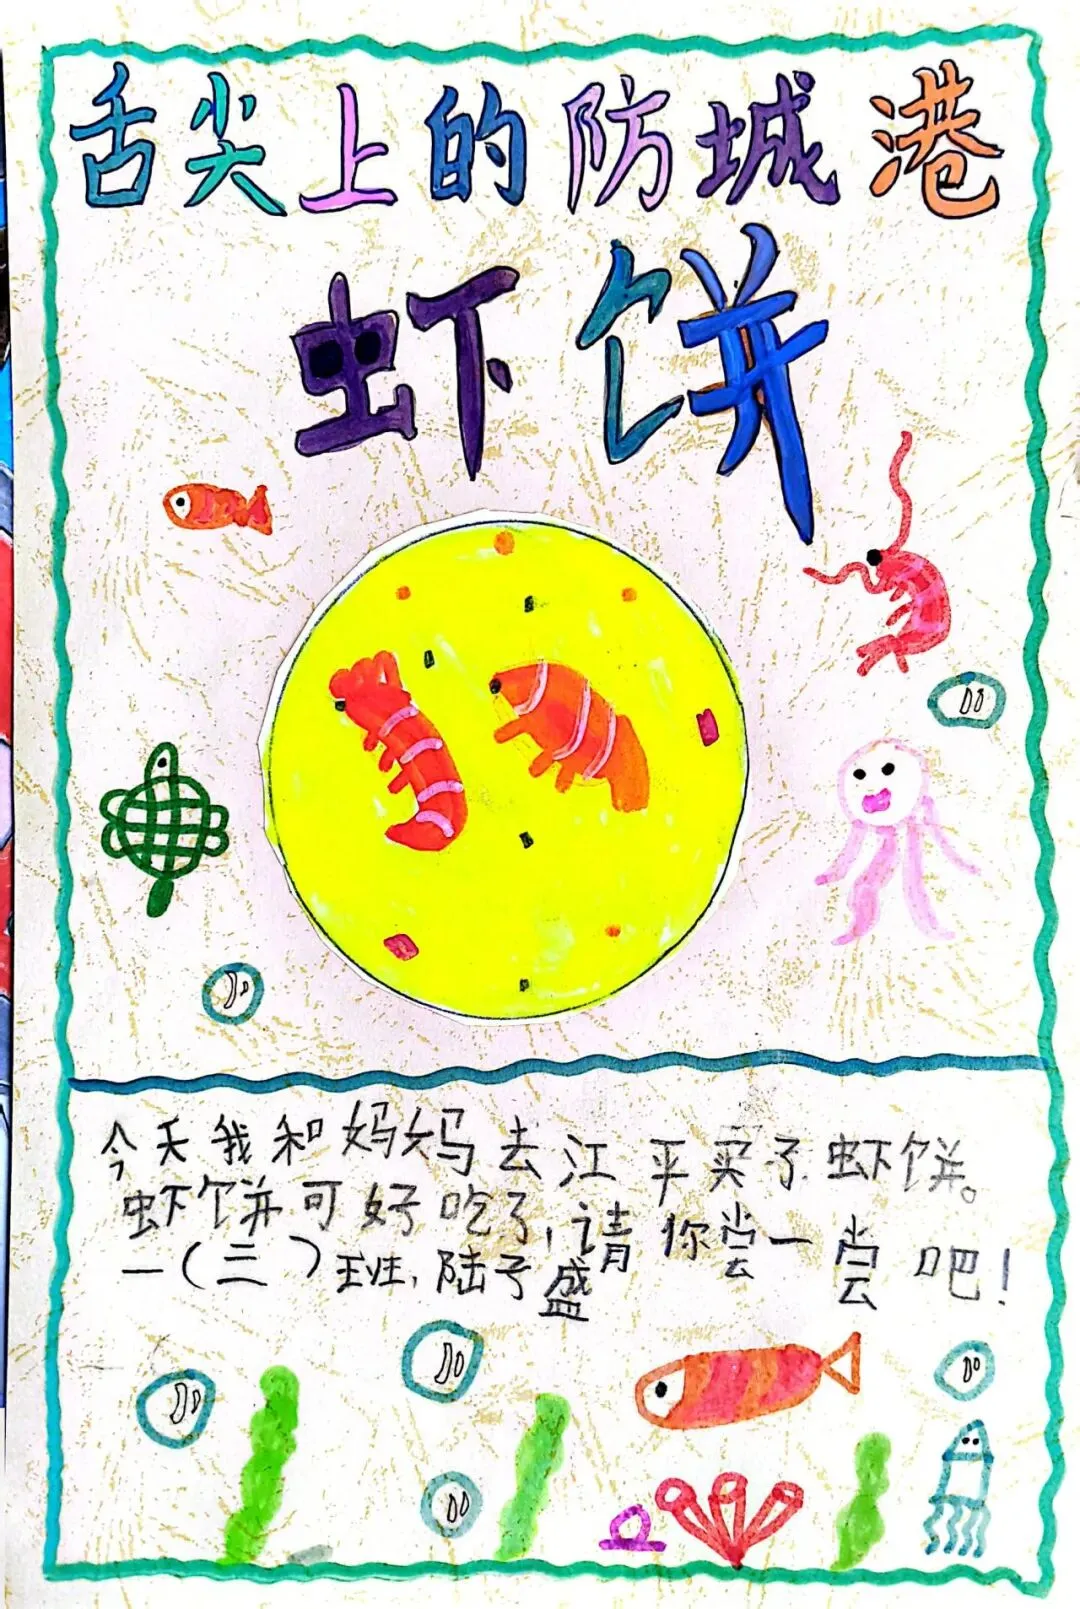 舌尖上的防城港
虾饼
今天我和妈妈去江平买了虾饼。
虾饼可好吃了,请你尝一尝吧!
一(三)班,陆子盛